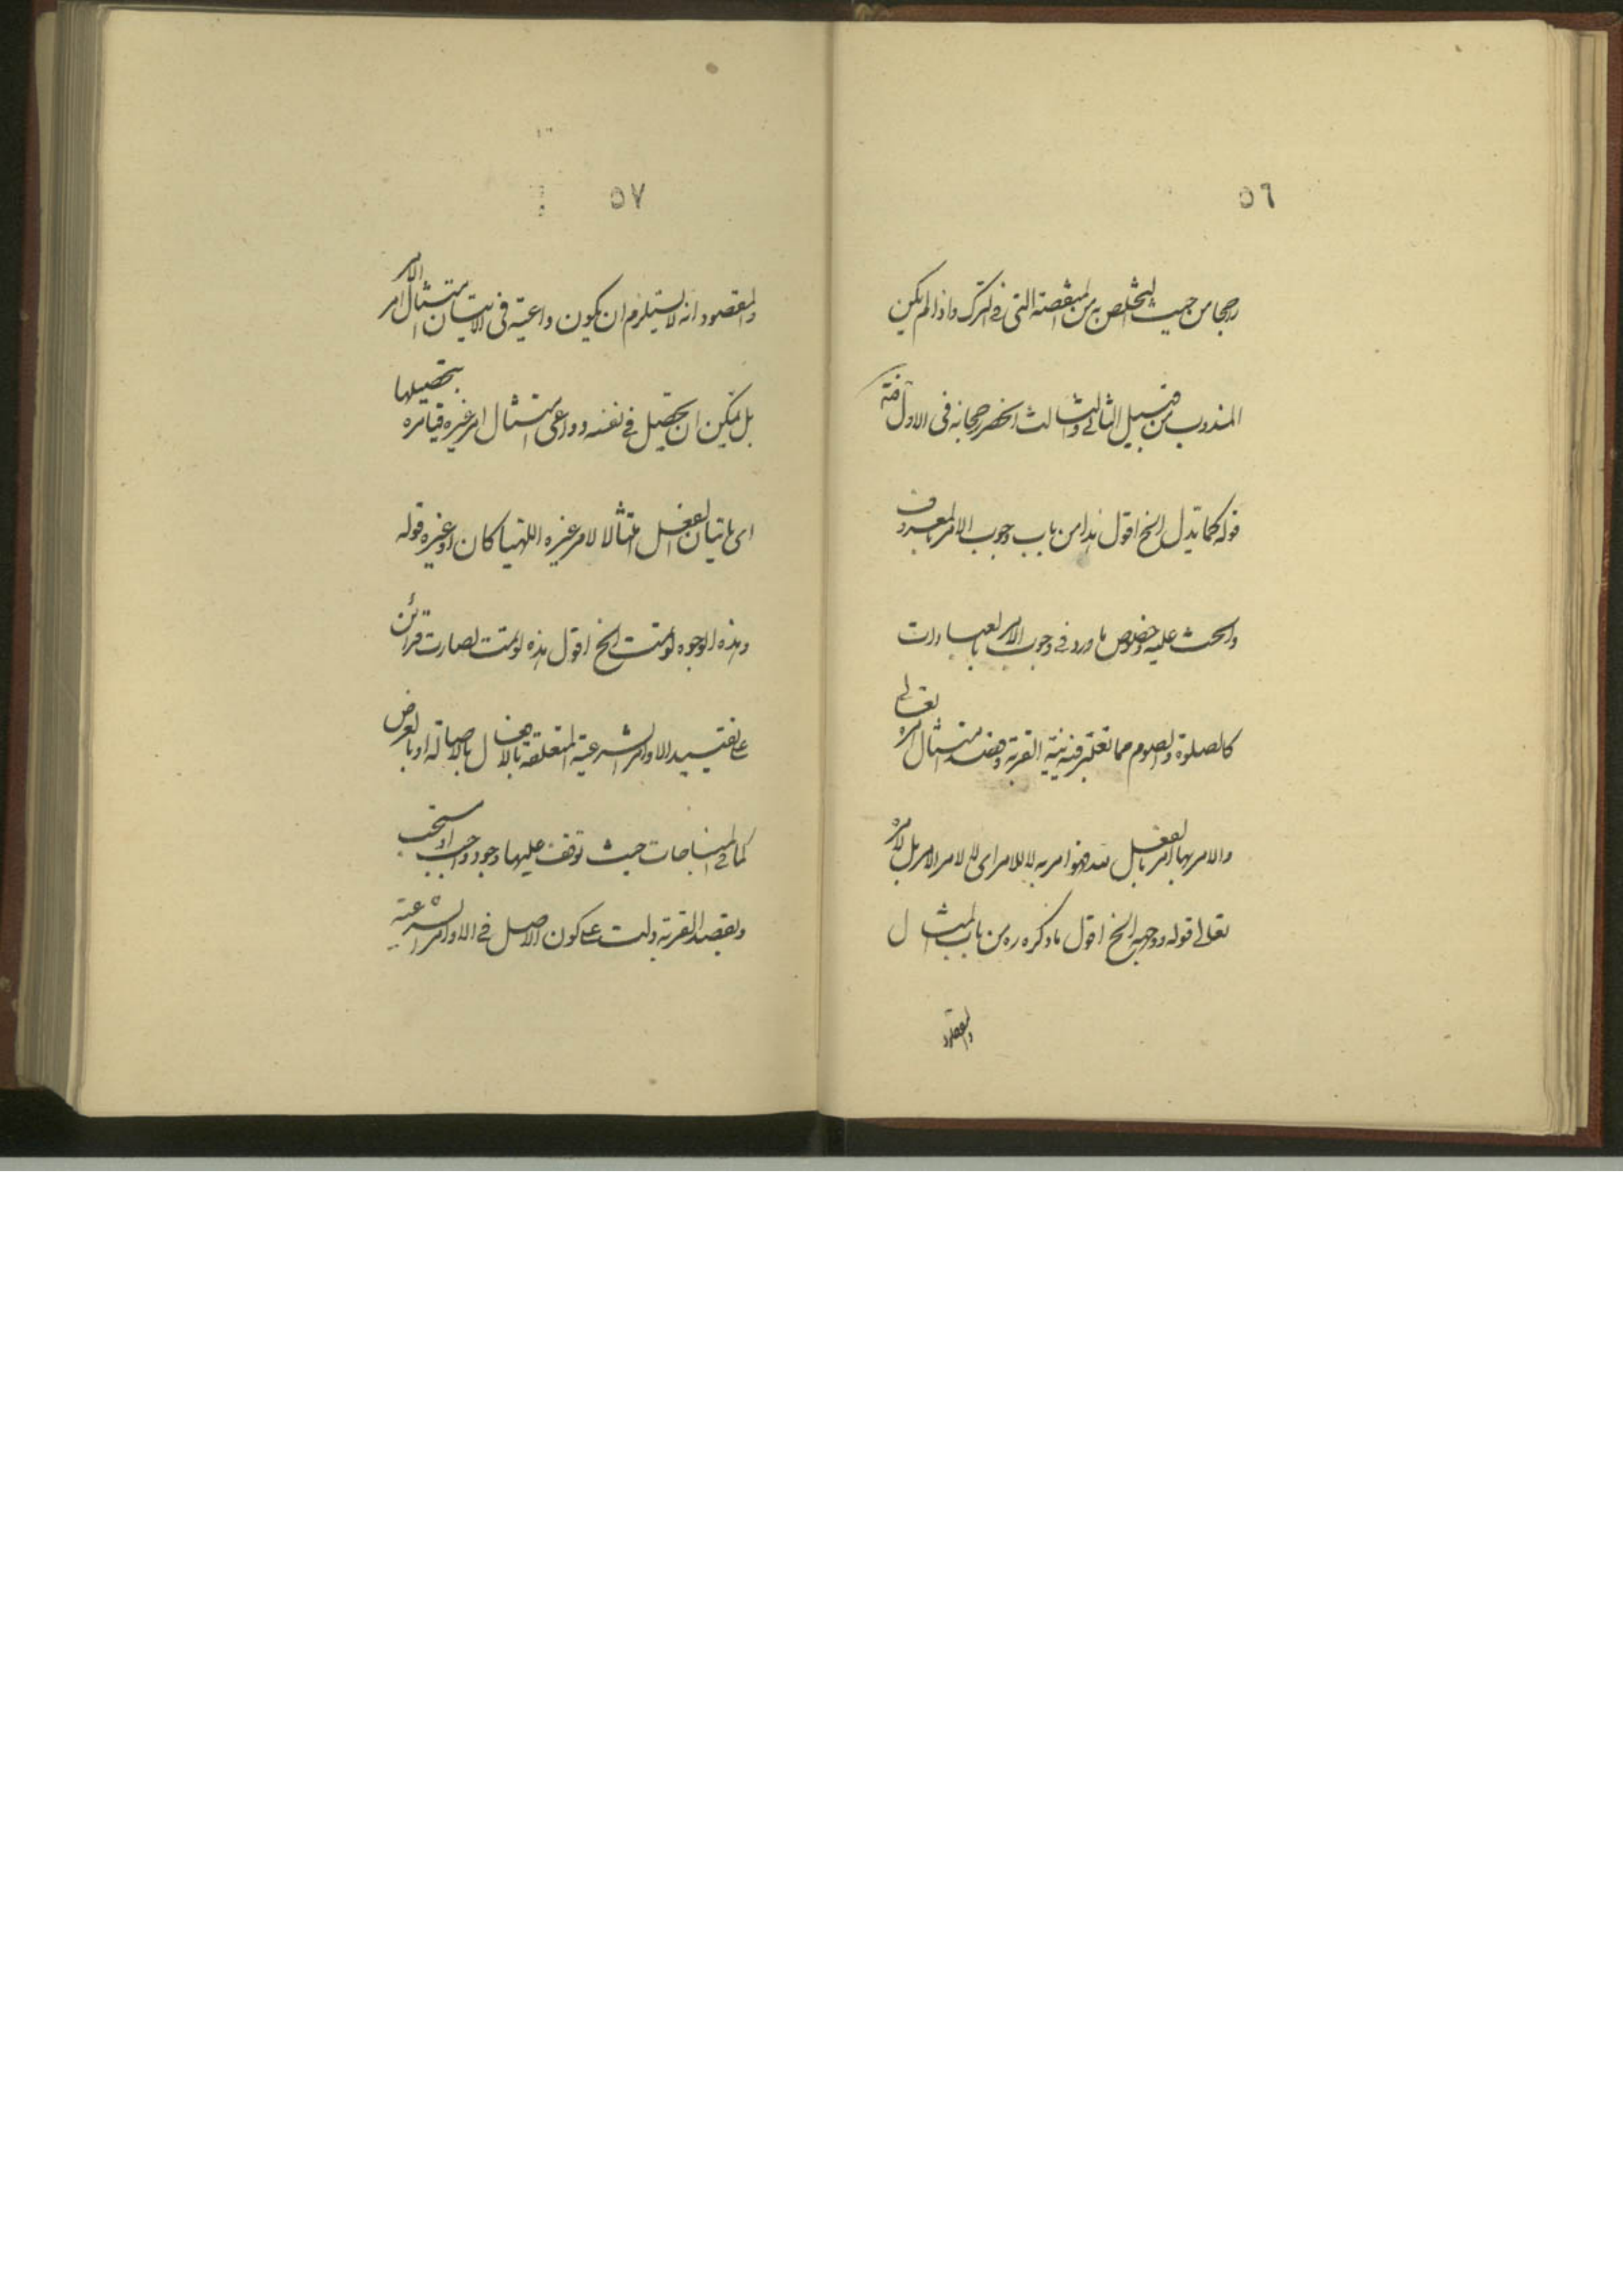 ٥٦
رجحا من حيث التخلص به من المنقصة التى فى الترك واذا لم يكن
المندوب من قبيل الثانى والثالث انحصر رجحانه فى الاول فتة
قوله كما تدل الخ اقول هذا من باب وجوب الامر بالمعروف
والحث عليه وخصوص ما ورد فى وجوب الامر بالعبادات
كالصلوة والصوم مما تعتبر فيه نية القربة وقصد امتثال امره تعالى
والامر بها امر بالفعل فهو امر به لا للامر اى لا لامر الامر بل لامره
تعالى قوله ووجهه الخ اقول ما ذكره ره من باب المثال
والمقصود
٥٧
والمقصود انه لا يستلزم ان يكون داعيه فى الاتيان امتثال امر الامر
بل يمكن ان يحصل فى نفسه دواعى امتثال امر غيره فيامره بتحصيلها
اى باتيان الفعل امتثالا لامر غيره اللهيا كان او غيره قوله
وهذه الوجوه لو تمت الخ اقول هذه لو تمت لصارت قرائن
على تقييد الاوامر الشرعية المتعلقة بالافعال بالاصالة او بالعرض
كما فى المباحات حيث توقف عليها وجود واجب او مستحب
وبقصد القربة دلت على كون الاصل فى الاوامر الشرعية